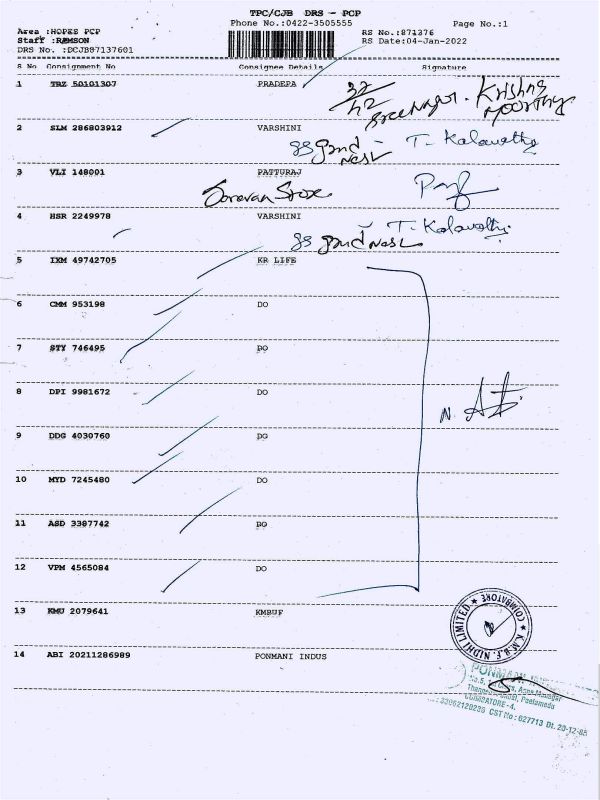 TPC/CJB DRS - PCP
Phone No.:0422-3505555
Page No.:1
Area :HOPES PCP
Staff :RAMSON
DRS No. :DCJB87137601
RS No.:871376
RS Date:04-Jan-2022
S No Consignment No Consignee Details Signature
1 TRZ 50101307 PRADEPA
32/42 Sreenagar. Krishna
moorthy
2 SLM 286803912 VARSHINI
T. Kalavathy
3 VLI 148001 PATTURAJ
Saravan Store
4 HSR 2249978 VARSHINI
T. Kalavathy
5 IXM 49742705 KR LIFE
6 CMM 953198 DO
7 STY 746495 DO
8 DPI 9981672 DO
N.
9 DDG 4030760 DO
10 MYD 7245480 DO
11 ASD 3387742 DO
12 VPM 4565084 DO
13 KMU 2079641 KMBUF
K.M.B.F. NIDHI LIMITED ★ (COIMBATORE) ★
14 ABI 20211286989 PONMANI INDUS
COIMBATORE - 4.
33062120236 CST No : 627713 Dt. 20-12-85